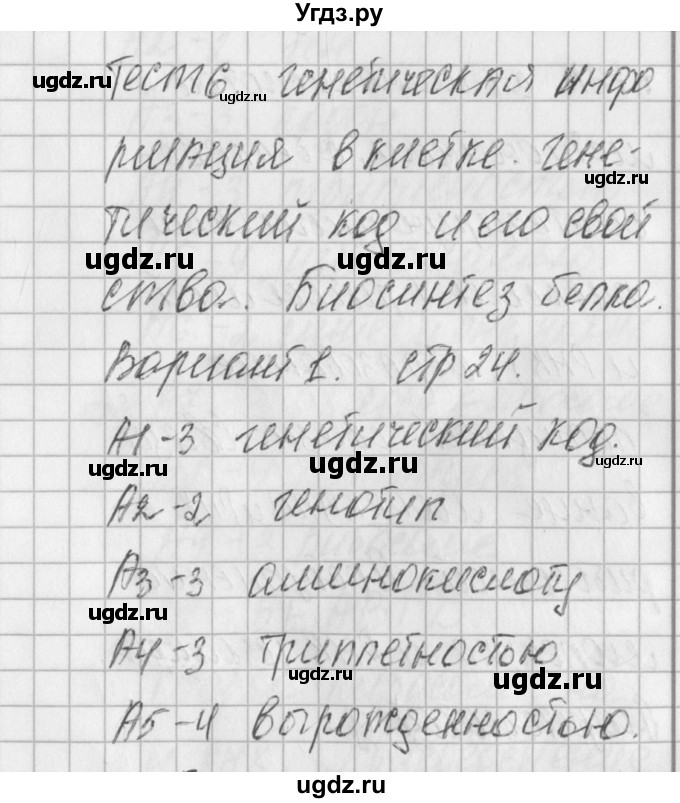 Угдз.ру
Тест 6 генетическая инфо
рмация в клетке. гене-
тический код и его свой
ства. Биосинтез белка.
Вариант 1. стр 24.
А1-3 генетический код.
А2-2 генотип
А3-3 аминокислоту
А4-3 триплетностью
А5-4 вырожденностью.
ugdz.ru
ugdz.ru
ugdz.ru
ugdz.ru
ugdz.ru
ugdz.ru
ugdz.ru
ugdz.ru
ugdz.ru
ugdz.ru
ugdz.ru
ugdz.ru
ugdz.ru
ugdz.ru